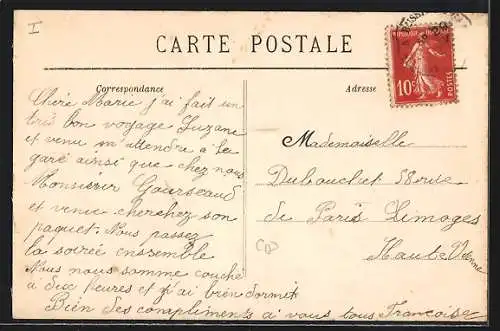 I
CARTE POSTALE
Correspondance
Adresse
REPUBLIQUE FRANÇAISE
10c
POSTES
Chère Marie j'ai fait un
tres bon voyage Suzane
et venu m'attendre a la
gare ainsi que chez nous
Monsieur Gourseaud
et venue cherchez son
paquet. Nous passez
la soirée enssemble
Nous nous somme couché
a dix heures et j'ai bien dormit
Bien des compliments a vous tous Francoise
Mademoiselle
Dubouchet 58 rue
de Paris Limoges
Haute Vienne